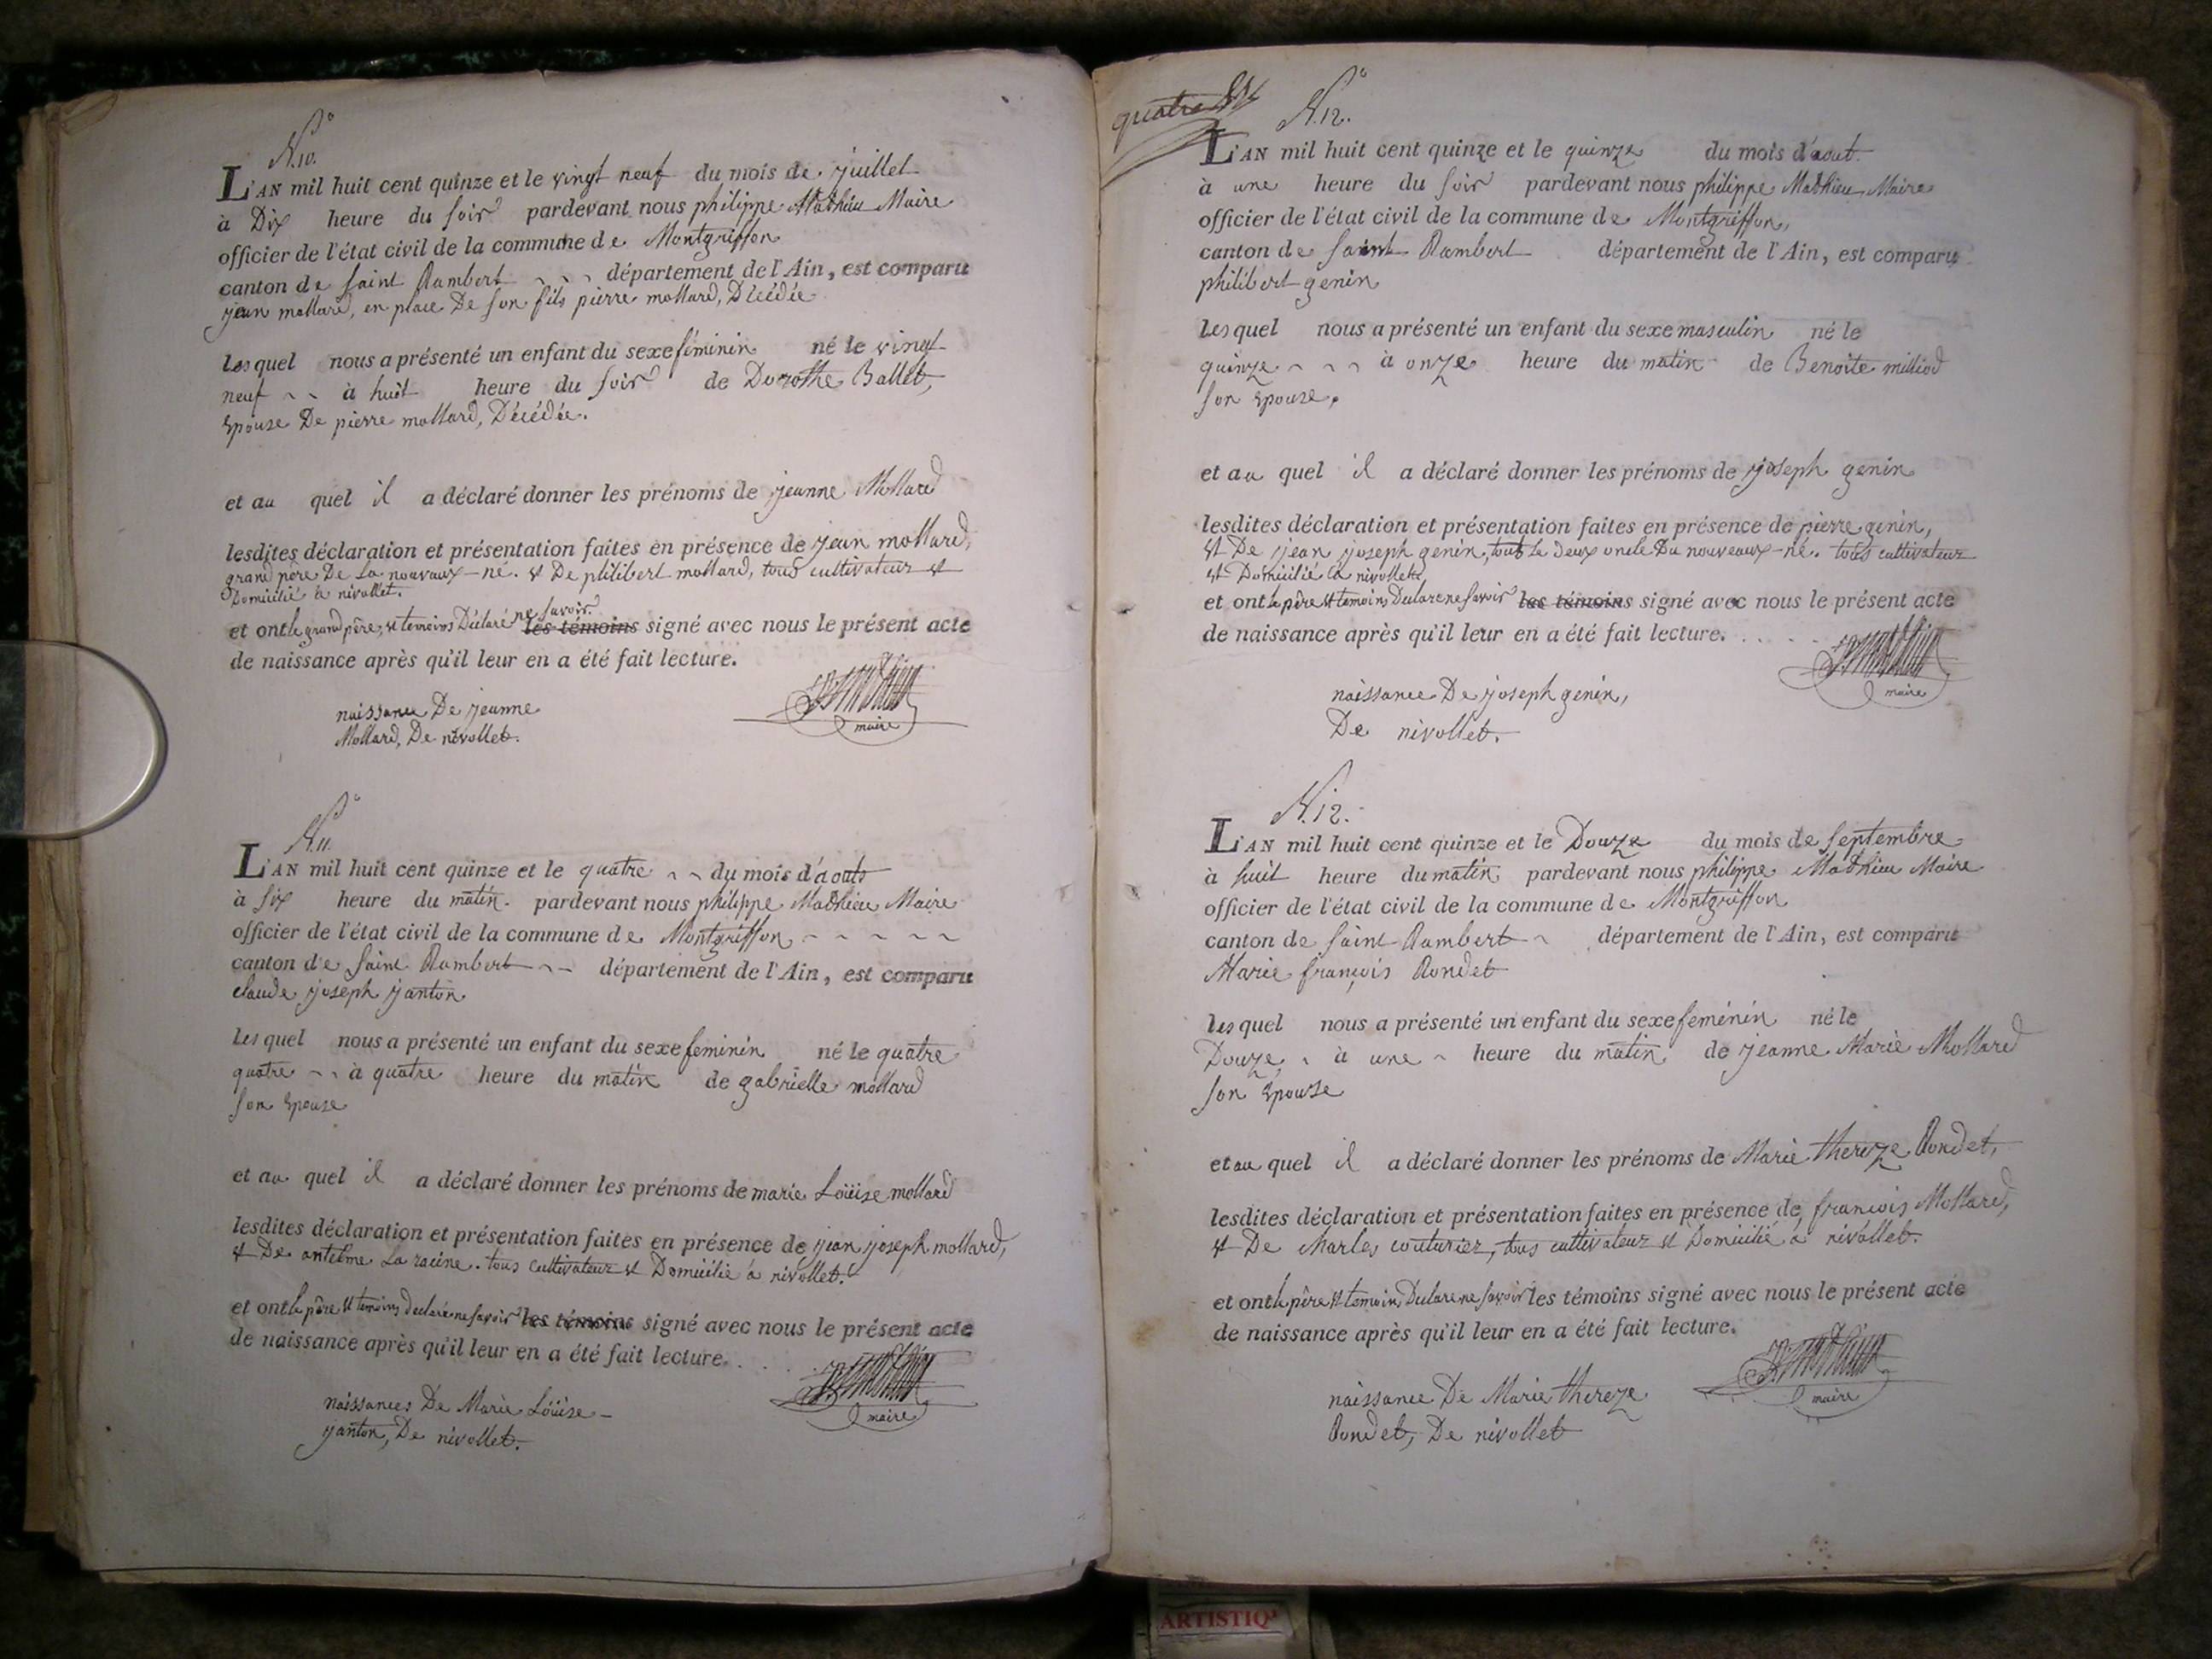 N.° 10.
L'AN mil huit cent quinze et le vingt neuf du mois de juillet
à Dix heure du soir pardevant nous philippe Mathieu Maire
officier de l'état civil de la commune de Montgriffon
canton de saint Rambert département de l'Ain, est comparu
jean mollard, en place De son fils pierre mollard, Décédée
lesquel nous a présenté un enfant du sexe féminin né le vingt
neuf à huit heure du soir de Dorothe Ballet,
Epouse De pierre mollard, Décédée.
et au quel il a déclaré donner les prénoms de jeanne Mollard
lesdites déclaration et présentation faites en présence de jean mollard,
grand père De la nouvaux-né. et De philibert mollard, tous cultivateur et
Domicilié à nivollet.
et ont le grand père, et temoins Déclaré ne savoir les témoins signé avec nous le présent acte
de naissance après qu'il leur en a été fait lecture.
maire
naissance De jeanne
Mollard, De nivollet.
N.° 11.
L'AN mil huit cent quinze et le quatre du mois d'aouts
à six heure du matin. pardevant nous philippe Mathieu Maire
officier de l'état civil de la commune de Montgriffon
canton de saint Rambert département de l'Ain, est comparu
claude joseph janton
lesquel nous a présenté un enfant du sexe feminin né le quatre
quatre à quatre heure du matin de gabrielle mollard
son Epouse
et au quel il a déclaré donner les prénoms de marie Loüise mollard
lesdites déclaration et présentation faites en présence de jean joseph mollard,
et De antelme La racine. tous cultivateur et Domicilié à nivollet.
et ont le père et temoins declaré ne savoir les témoins signé avec nous le présent acte
de naissance après qu'il leur en a été fait lecture. . .
maire
naissances De Marie Loüise
janton, De nivollet.
quatre
N.° 12.
L'AN mil huit cent quinze et le quinze du mois d'aout
à une heure du soir pardevant nous philippe Mathieu Maire
officier de l'état civil de la commune de Montgriffon,
canton de saint Rambert département de l'Ain, est comparu
philibert genin
lesquel nous a présenté un enfant du sexe masculin né le
quinze à onze heure du matin de Benoite milliod
son Epouse.
et au quel il a déclaré donner les prénoms de joseph genin
lesdites déclaration et présentation faites en présence de pierre genin,
et De jean joseph genin, tout le deux oncle Du nouveaux-né. tous cultivateur
et Domicilié à nivollet,
et ont le père et temoins Declare ne savoir les témoins signé avec nous le présent acte
de naissance après qu'il leur en a été fait lecture. . . . .
maire
naissance De joseph genin,
De nivollet.
N.° 12.
L'AN mil huit cent quinze et le Douze du mois de septembre
à huit heure du matin pardevant nous philippe Mathieu Maire
officier de l'état civil de la commune de Montgriffon
canton de saint Rambert département de l'Ain, est comparu
Marie françois Rondet
lesquel nous a présenté un enfant du sexe feminin né le
Douze à une heure du matin de jeanne Marie Mollard
son Epouse
et au quel il a déclaré donner les prénoms de Marie thereze Rondet,
lesdites déclaration et présentation faites en présence de francois Mollard,
et De Charles couturier, tous cultivateur et Domicilié à nivollet.
et ont le père et temoin, Declare ne savoir les témoins signé avec nous le présent acte
de naissance après qu'il leur en a été fait lecture.
maire
naissance De Marie thereze
Rondet, De nivollet
ARTISTIQ